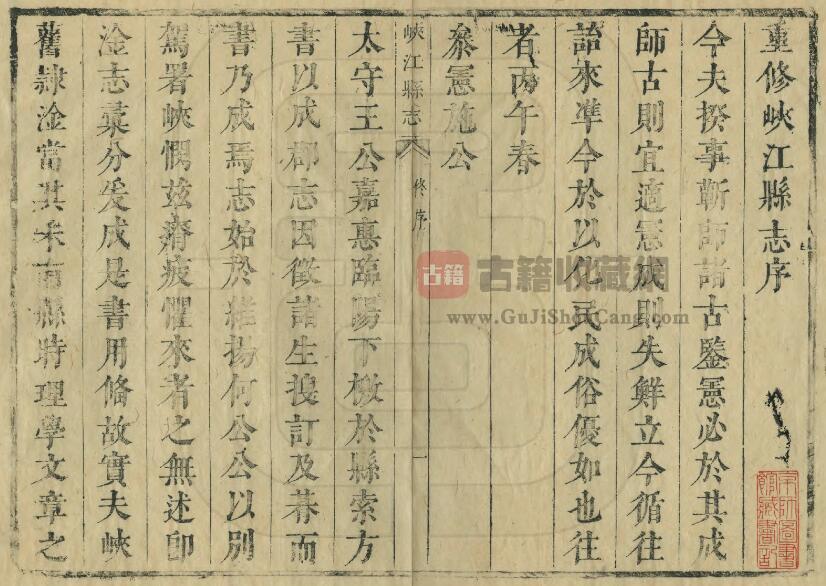 重修峽江縣志序
今夫揆事靳師諸古鑒憲必於其成
師古則宜適憲成則失鮮立今循往
詒來準今於以化民成俗優如也往
者丙午春
叅憲施公
峽江縣志 修序 一
太守王公嘉惠臨陽下檄於縣索方
書以成郡志因徵諸生搜訂及朞而
書乃成焉志始於維揚何公公以別
駕署峽憫兹瘠疲懼來者之無述即
淦志彙分爰成是書用備故實夫峽
舊隷淦當其未有縣時理學文章之
古籍 古籍收藏網
www.GuJiShouCang.com